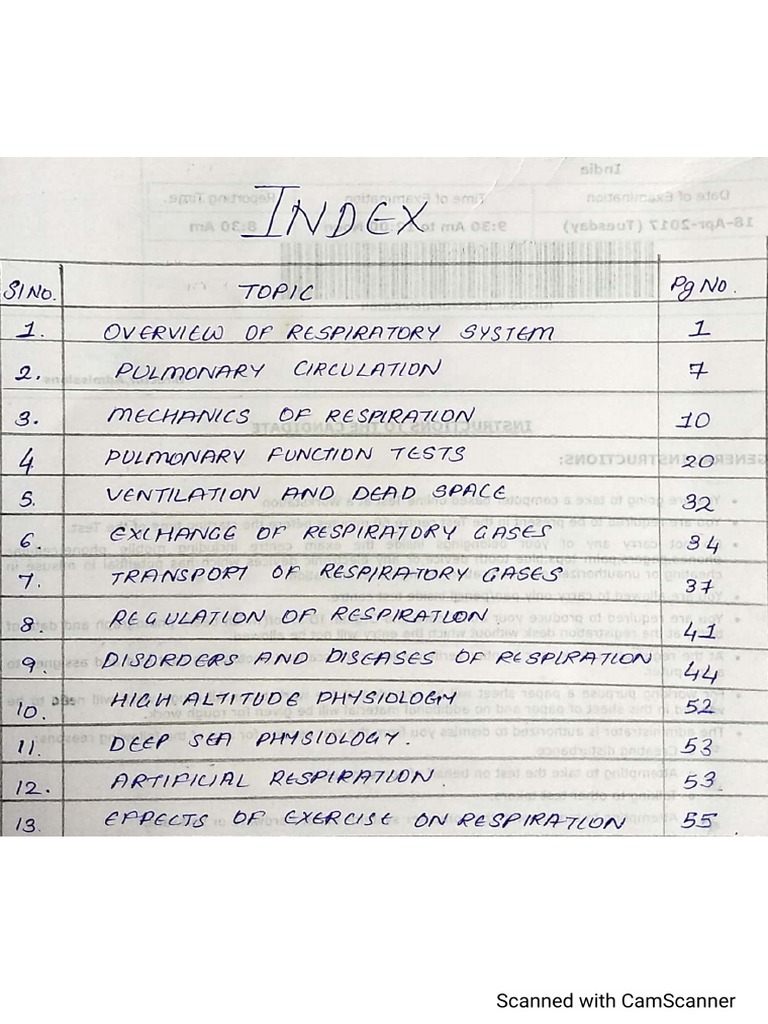 INDEX
Sl No. TOPIC Pg No.
1. OVERVIEW OF RESPIRATORY SYSTEM 1
2. PULMONARY CIRCULATION 7
3. MECHANICS OF RESPIRATION 10
4 PULMONARY FUNCTION TESTS 20
5. VENTILATION AND DEAD SPACE 32
6. EXCHANGE OF RESPIRATORY GASES 34
7. TRANSPORT OF RESPIRATORY GASES 37
8. REGULATION OF RESPIRATION 41
9. DISORDERS AND DISEASES OF RESPIRATION 44
10. HIGH ALTITUDE PHYSIOLOGY 52
11. DEEP SEA PHYSIOLOGY. 53
12. ARTIFICIAL RESPIRATION. 53
13. EFFECTS OF EXERCISE ON RESPIRATION 55
Scanned with CamScanner